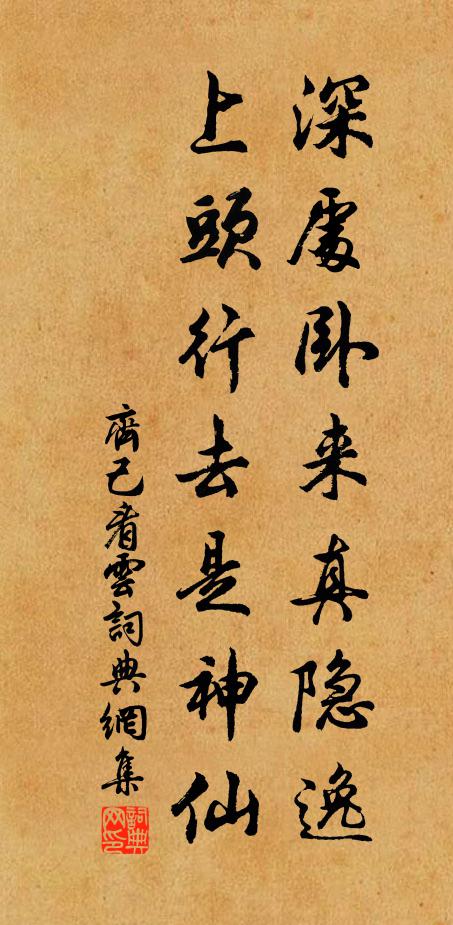 深處卧来真隐逸
上頭行去是神仙
齊己看雲詞典網集
詞典网印